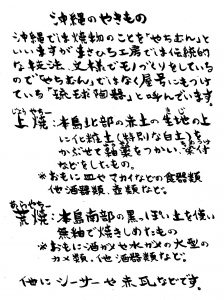 沖縄のやきもの
沖縄では焼物のことを"やちむん"と
いいますがまさひろ工房では伝統的
な技法、文様でモノづくりをしている
ので"やちむん"ではなく屋号にもつけ
ている"琉球陶器"と呼んでいます
じょうやちー
上焼:本島北部の赤土の生地の上
に化粧土(特別な白土)を
かぶせて釉薬をつかい、染付
などをしたもの。
※おもに皿やマカイなどの食器類
他酒器類、壺類など。
あらやちー
荒焼:本島南部の黒っぽい土を使い
無釉で焼きしめたもの
※おもに酒ガメや水ガメの大型の
カメ類、他酒器類など。
他にシーサーや赤瓦などです。